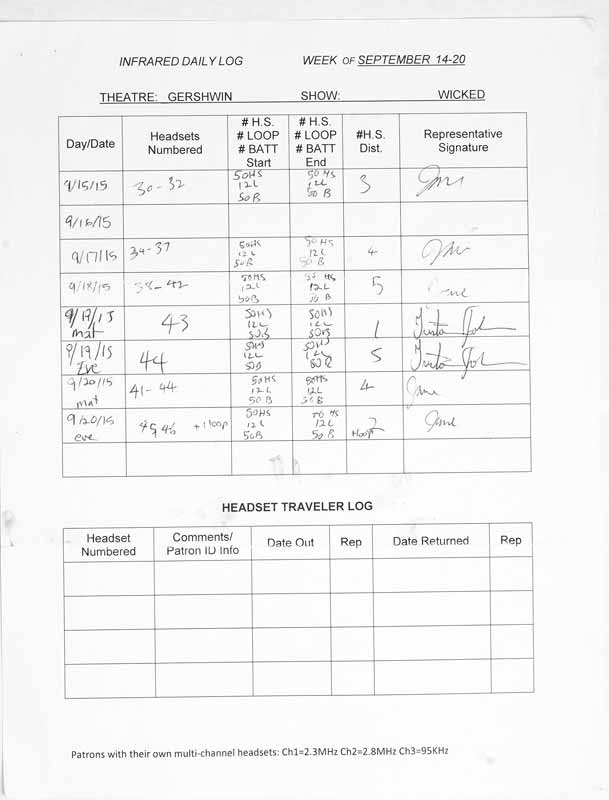 INFRARED DAILY LOG WEEK OF SEPTEMBER 14-20
THEATRE: GERSHWIN SHOW: WICKED
Day/Date
Headsets
Numbered
# H.S.
# LOOP
# BATT
Start
# H.S.
# LOOP
# BATT
End
#H.S.
Dist.
Representative
Signature
9/15/15
30-32
50HS
12L
50B
50HS
12L
50B
3
9/16/15
9/17/15
34-37
50HS
12L
50B
50HS
12L
50B
4
9/18/15
38-42
50HS
12L
50B
50 HS
12L
50 B
5
9/19/15
mat
43
50HS
12L
50B
50HS
12L
50B
1
9/19/15
Eve
44
50HS
12L
50B
50HS
12L
50B
5
9/20/15
mat
41-44
50HS
12L
50B
50HS
12L
50B
4
9/20/15
eve
45 46 +1loop
50HS
12L
50B
50 HS
12L
50 B
2
+loop
HEADSET TRAVELER LOG
Headset
Numbered
Comments/
Patron ID Info
Date Out
Rep
Date Returned
Rep
Patrons with their own multi-channel headsets: Ch1=2.3MHz Ch2=2.8MHz Ch3=95KHz